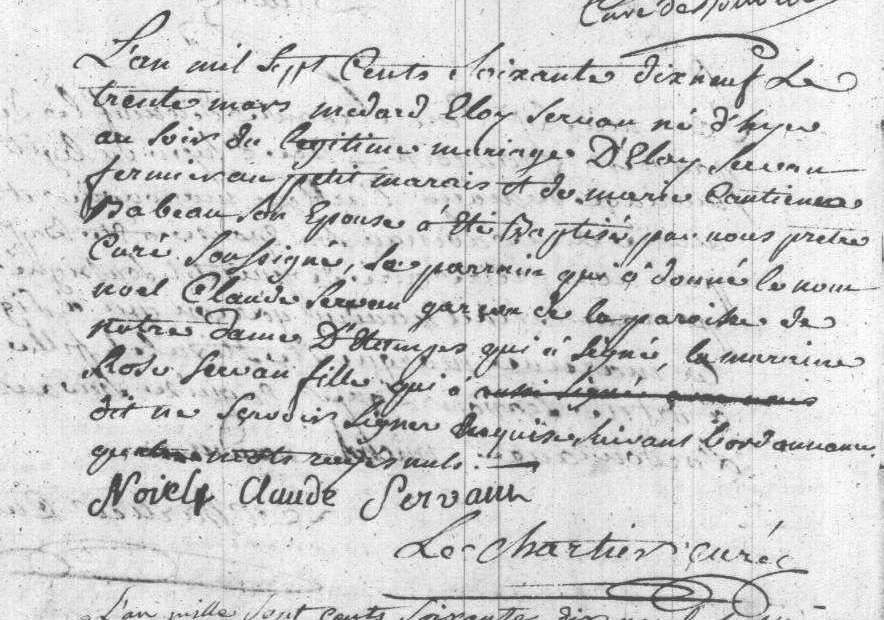 Curé de
L'an mil Sept Cents Soixante dixneuf Le
trente mars medard Eloy Servau né d'hyer
au soir du legitime mariage D'Eloy Servau
fermier au petit marais et de marie Cantienne
Babeau Son Epouse à été Baptisé par nous pretre
Curé Soussigné, Le parrain qui a donné le nom
noel Claude Servau garçon de la paroisse de
notre dame D'Etampes qui à Signé, la marraine
Rose Servau fille qui à aussi signée avec nous
dit ne Scavoir Signer Enquise Suivant l'ordonnance
quatre mots rayés nuls.
Noiel Claude Servaun
Le Chartier curé
L'an mille Sept Cents Soixante dix